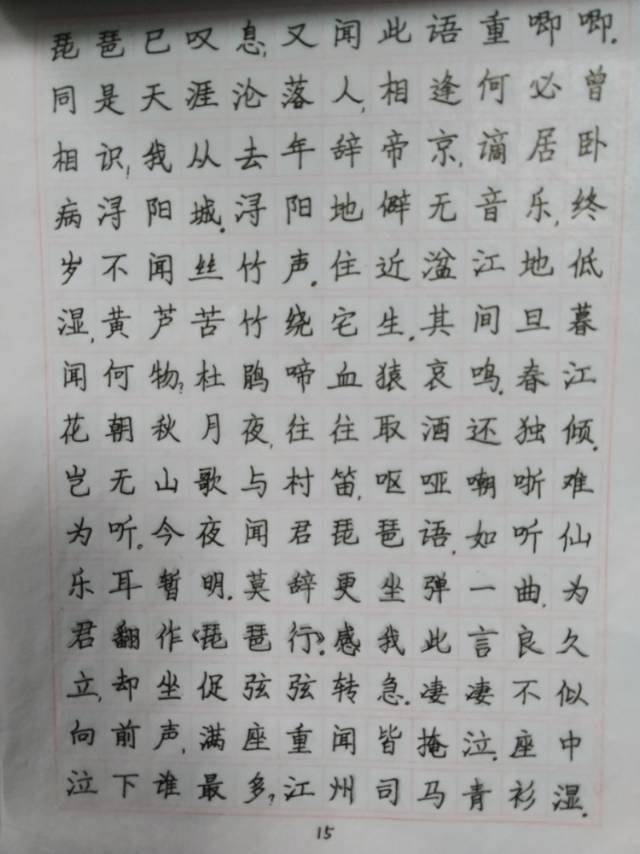 琵琶已叹息,又闻此语重唧唧.
同是天涯沦落人,相逢何必曾
相识,我从去年辞帝京,谪居卧
病浔阳城.浔阳地僻无音乐,终
岁不闻丝竹声.住近湓江地低
湿,黄芦苦竹绕宅生.其间旦暮
闻何物?杜鹃啼血猿哀鸣.春江
花朝秋月夜,往往取酒还独倾.
岂无山歌与村笛,呕哑嘲哳难
为听.今夜闻君琵琶语,如听仙
乐耳暂明.莫辞更坐弹一曲,为
君翻作《琵琶行》.感我此言良久
立,却坐促弦弦转急.凄凄不似
向前声,满座重闻皆掩泣.座中
泣下谁最多?江州司马青衫湿.
15